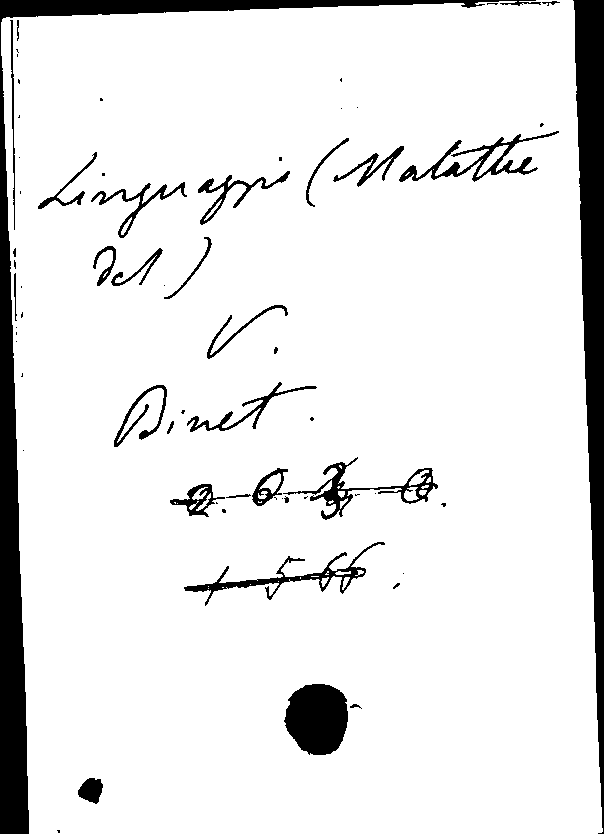 Linguaggio (Malattie
del)
V.
Binet.
1566.